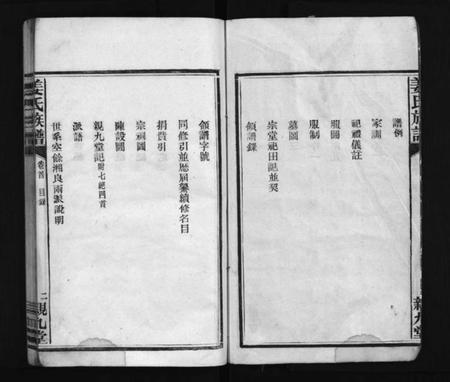 姜氏族譜
譜例
家訓
祀禮儀註
服圖
服制
墓圖
宗堂祀田記並契
領譜錄
親九堂
領譜字號
同修引並歷屆纂續修名目
捐貲引
宗祠圖
陳設圖
親九堂記附七絕四首
派語
世系室餘湘良兩派說明
姜氏族譜
卷首 目錄
二
親九堂